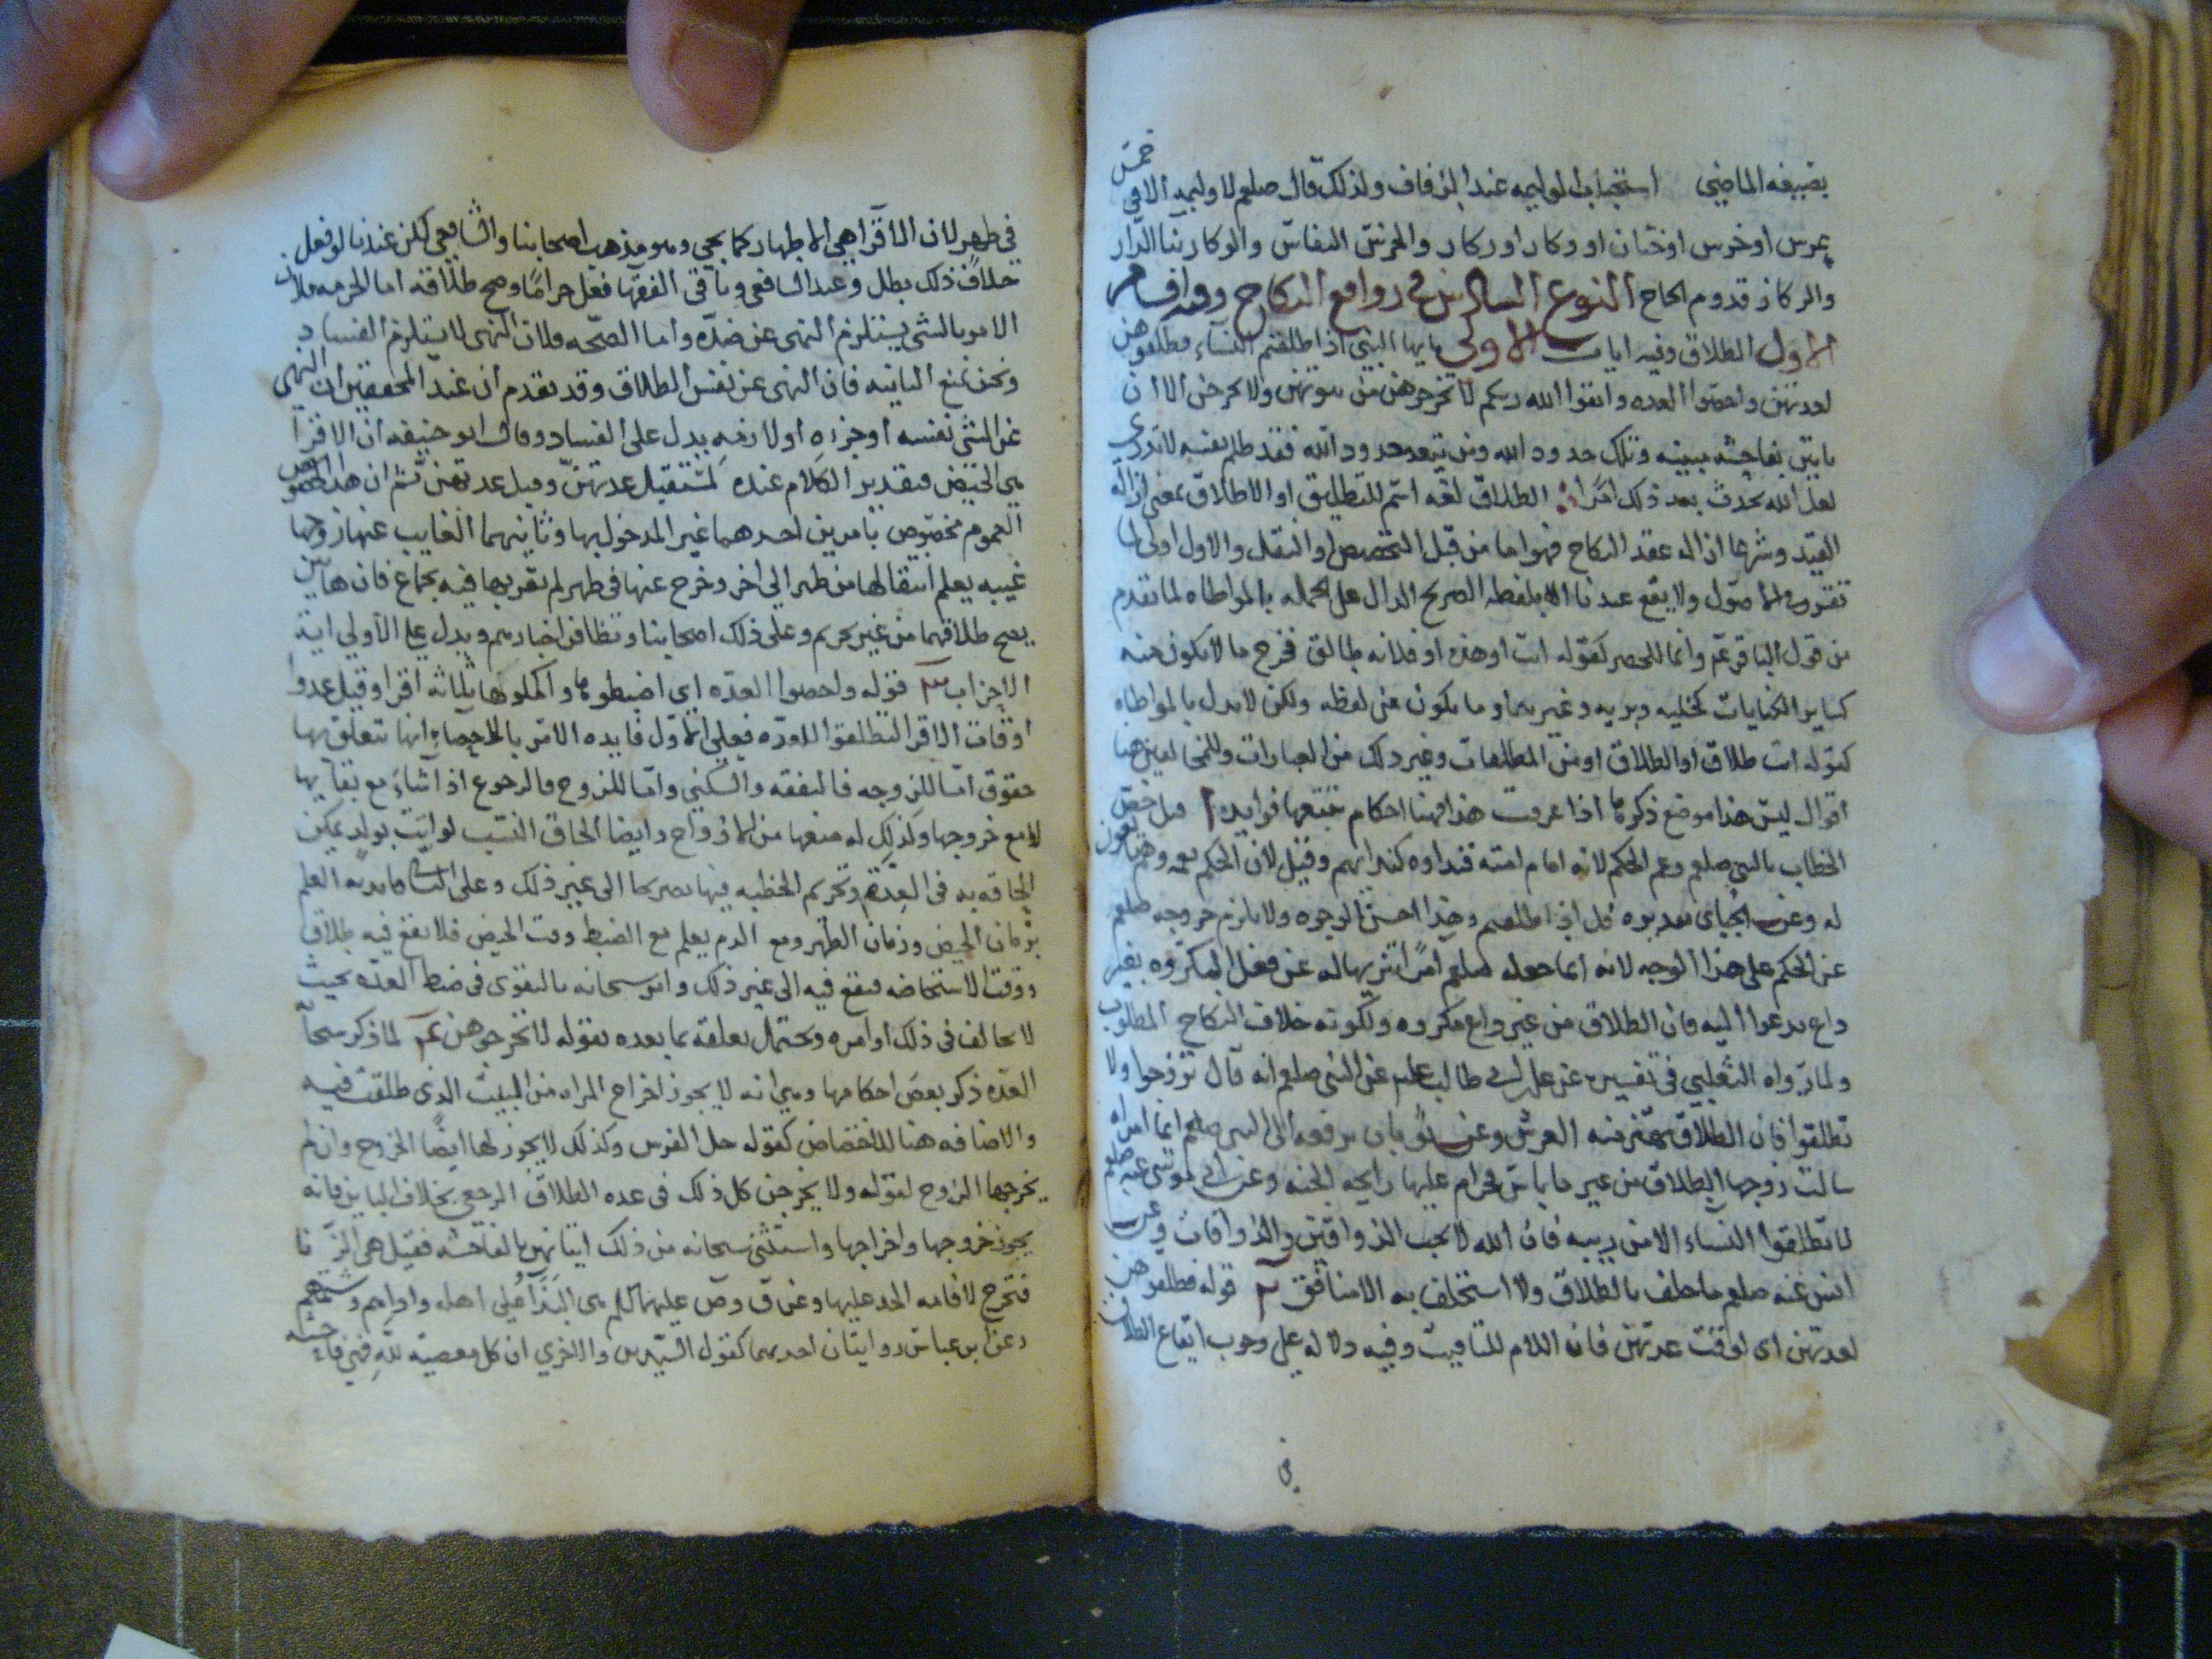 بصيغه الماضي استحباب الوليمه عند الزفاف ولذلك قال صلعم لا وليمه الا في خمس
عرس او خرس او ختان او وكار او ركاز والخرس النفاس والوكار بنا الدار
والركاز قدوم الحاج النوع السادس في روافع النكاح وهي اقسام
الاول الطلاق وفيه ايات الاولى يايها النبي اذا طلقتم النساء فطلقوهن
لعدتهن واحصوا العده واتقوا الله ربكم لا تخرجوهن من بيوتهن ولا يخرجن الا ان
ياتين بفاحشه مبينه وتلك حدود الله ومن يتعد حدود الله فقد ظلم نفسه لا تدري
لعل الله يحدث بعد ذلك امرا الطلاق لغه اسم للتطليق او الاطلاق بمعنى ازاله
القيد وشرعا ازاله عقد النكاح فهو اما من قبل التخصيص او النقل والاول اولى لما
تقرر في الاصول ولا يقع عندنا الا بلفظه الصريح الدال على الجمله بالمواطاه لما تقدم
من قول الباقر عم وانما للحصر كقوله انت او هذه او فلانه طالق فخرج ما لا يكون منه
كساير الكنايات كخليه وبريه وغيرهما وما يكون من لفظه ولكن لا يدل بالمواطاه
كقوله انت طلاق او الطلاق او من المطلقات وغير ذلك من العبارات وللمخالفين هنا
اقوال ليس هذا موضع ذكرها اذا عرفت هذا فهنا احكام تتبعها فوايد ا قيل خص
الخطاب بالنبي صلعم وعم الحكم لانه امام امته فنداوه كندايهم وقيل لان الحكم يعمه وهم تابعون
له وعن الجباي تقديره قل اذا طلقتم وهذا احسن الوجوه ولا يلزم خروجه صلعم
عن الحكم على هذا الوجه لانه انما جعله صلعم امرا تنزيها له عن فعل المكروه بغير
داع يدعوا اليه فان الطلاق من غير داع مكروه ولكونه خلاف النكاح المطلوب
ولما رواه الثعلبي في تفسيره عن علي بن ابي طالب عليه عن النبي صلعم انه قال تزوجوا ولا
تطلقوا فان الطلاق يهتز منه العرش وعن ثوبان يرفعه الى النبي صلعم ايما امراه
سالت زوجها الطلاق من غير ما باس فحرام عليها رايحه الجنه وعن ابي موسى عنه صلعم
لا تطلقوا النساء الا من ريبه فان الله لا يحب الذواقين والذواقات وعن
انس عنه صلعم ما حلف بالطلاق ولا استحلف به الا منافق ٢ قوله فطلقوهن
لعدتهن اى لوقت عدتهن فان اللام للتاقيت وفيه دلاله على وجوب ايقاع الطلاق
في
في طهر لان الاقراء هي الاطهار كما يجي وهو مذهب اصحابنا والشافعي لكن عندنا لو فعل
خلاف ذلك بطل وعند الشافعي وباقي الفقها فعل حراما وصح طلاقه اما الحرمه فلان
الامر بالشي يستلزم النهى عن ضده واما الصحه فلان النهى لا يستلزم الفساد
ونحن نمنع الثانيه فان النهى عن نفس الطلاق وقد تقدم ان عند المحققين ان النهى
عن الشي نفسه او جزءه او لازمه يدل على الفساد وقال ابو حنيفه ان الاقراء
هى الحيض فتقدير الكلام عنده لمستقبل عدتهن وقبل عدتهن ثم ان هذا
العموم مخصوص بامرين احدهما غير المدخول بها وثانيهما الغايب عنها زوجها
غيبه يعلم انتقالها من طهر الى اخر وخرج عنها في طهر لم يقربها فيه بجماع فان هاتين
يصح طلاقهما من غير تحريم وعلى ذلك اصحابنا وتظافر اخبارهم ويدل على الاولى اية
الاحزاب ٣ قوله واحصوا العده اى اضبطوها واكملوها ثلثه اقراء وقيل عدوا
اوقات الاقراء لتطلقوا للعده فعلى الاول فايده الامر بالاحصاء انها تتعلق بها
حقوق اما للزوجه فالنفقه والسكنى واما للزوج فالرجوع اذا شاء مع بقايها
لا مع خروجها وكذلك له منعها من الازواج وايضا الحاق النسب لو اتت بولد يمكن
الحاقه به في العده وتحريم الخطبه فيها تصريحا الى غير ذلك وعلى الثاني فايدته العلم
بزمان الحيض وزمان الطهر ومع الدم يعلم مع الضبط وقت الحيض فلا يقع فيه طلاق
ووقت الاستحاضه فيقع فيه الى غير ذلك وامر سبحانه بالتقوى في ضبط العده بحيث
لا يخالف في ذلك اوامره ويحتمل تعلقه بما بعده بقوله لا تخرجوهن ٤ لما ذكر سبحانه
العده ذكر بعض احكامها وهى انه لا يجوز اخراج المراه من البيت الذى طلقت فيه
والاضافه هنا للاختصاص كقوله جل الفرس وكذلك لا يجوز لها ايضا الخروج وان لم
يخرجها الزوج لقوله ولا يخرجن كل ذلك في عده الطلاق الرجعى بخلاف الباين فانه
يجوز خروجها واخراجها واستثنى سبحانه من ذلك اتيانهن بالفاحشه فقيل هى الزنا
فتخرج لاقامه الحد عليها وعن ق وص عليهما السلم هى البذاء على اهله واذاهم وشتمهم
وعن ابن عباس روايتان احدهما كقول السيدين والاخرى ان كل معصيه لله فهى فاحشه